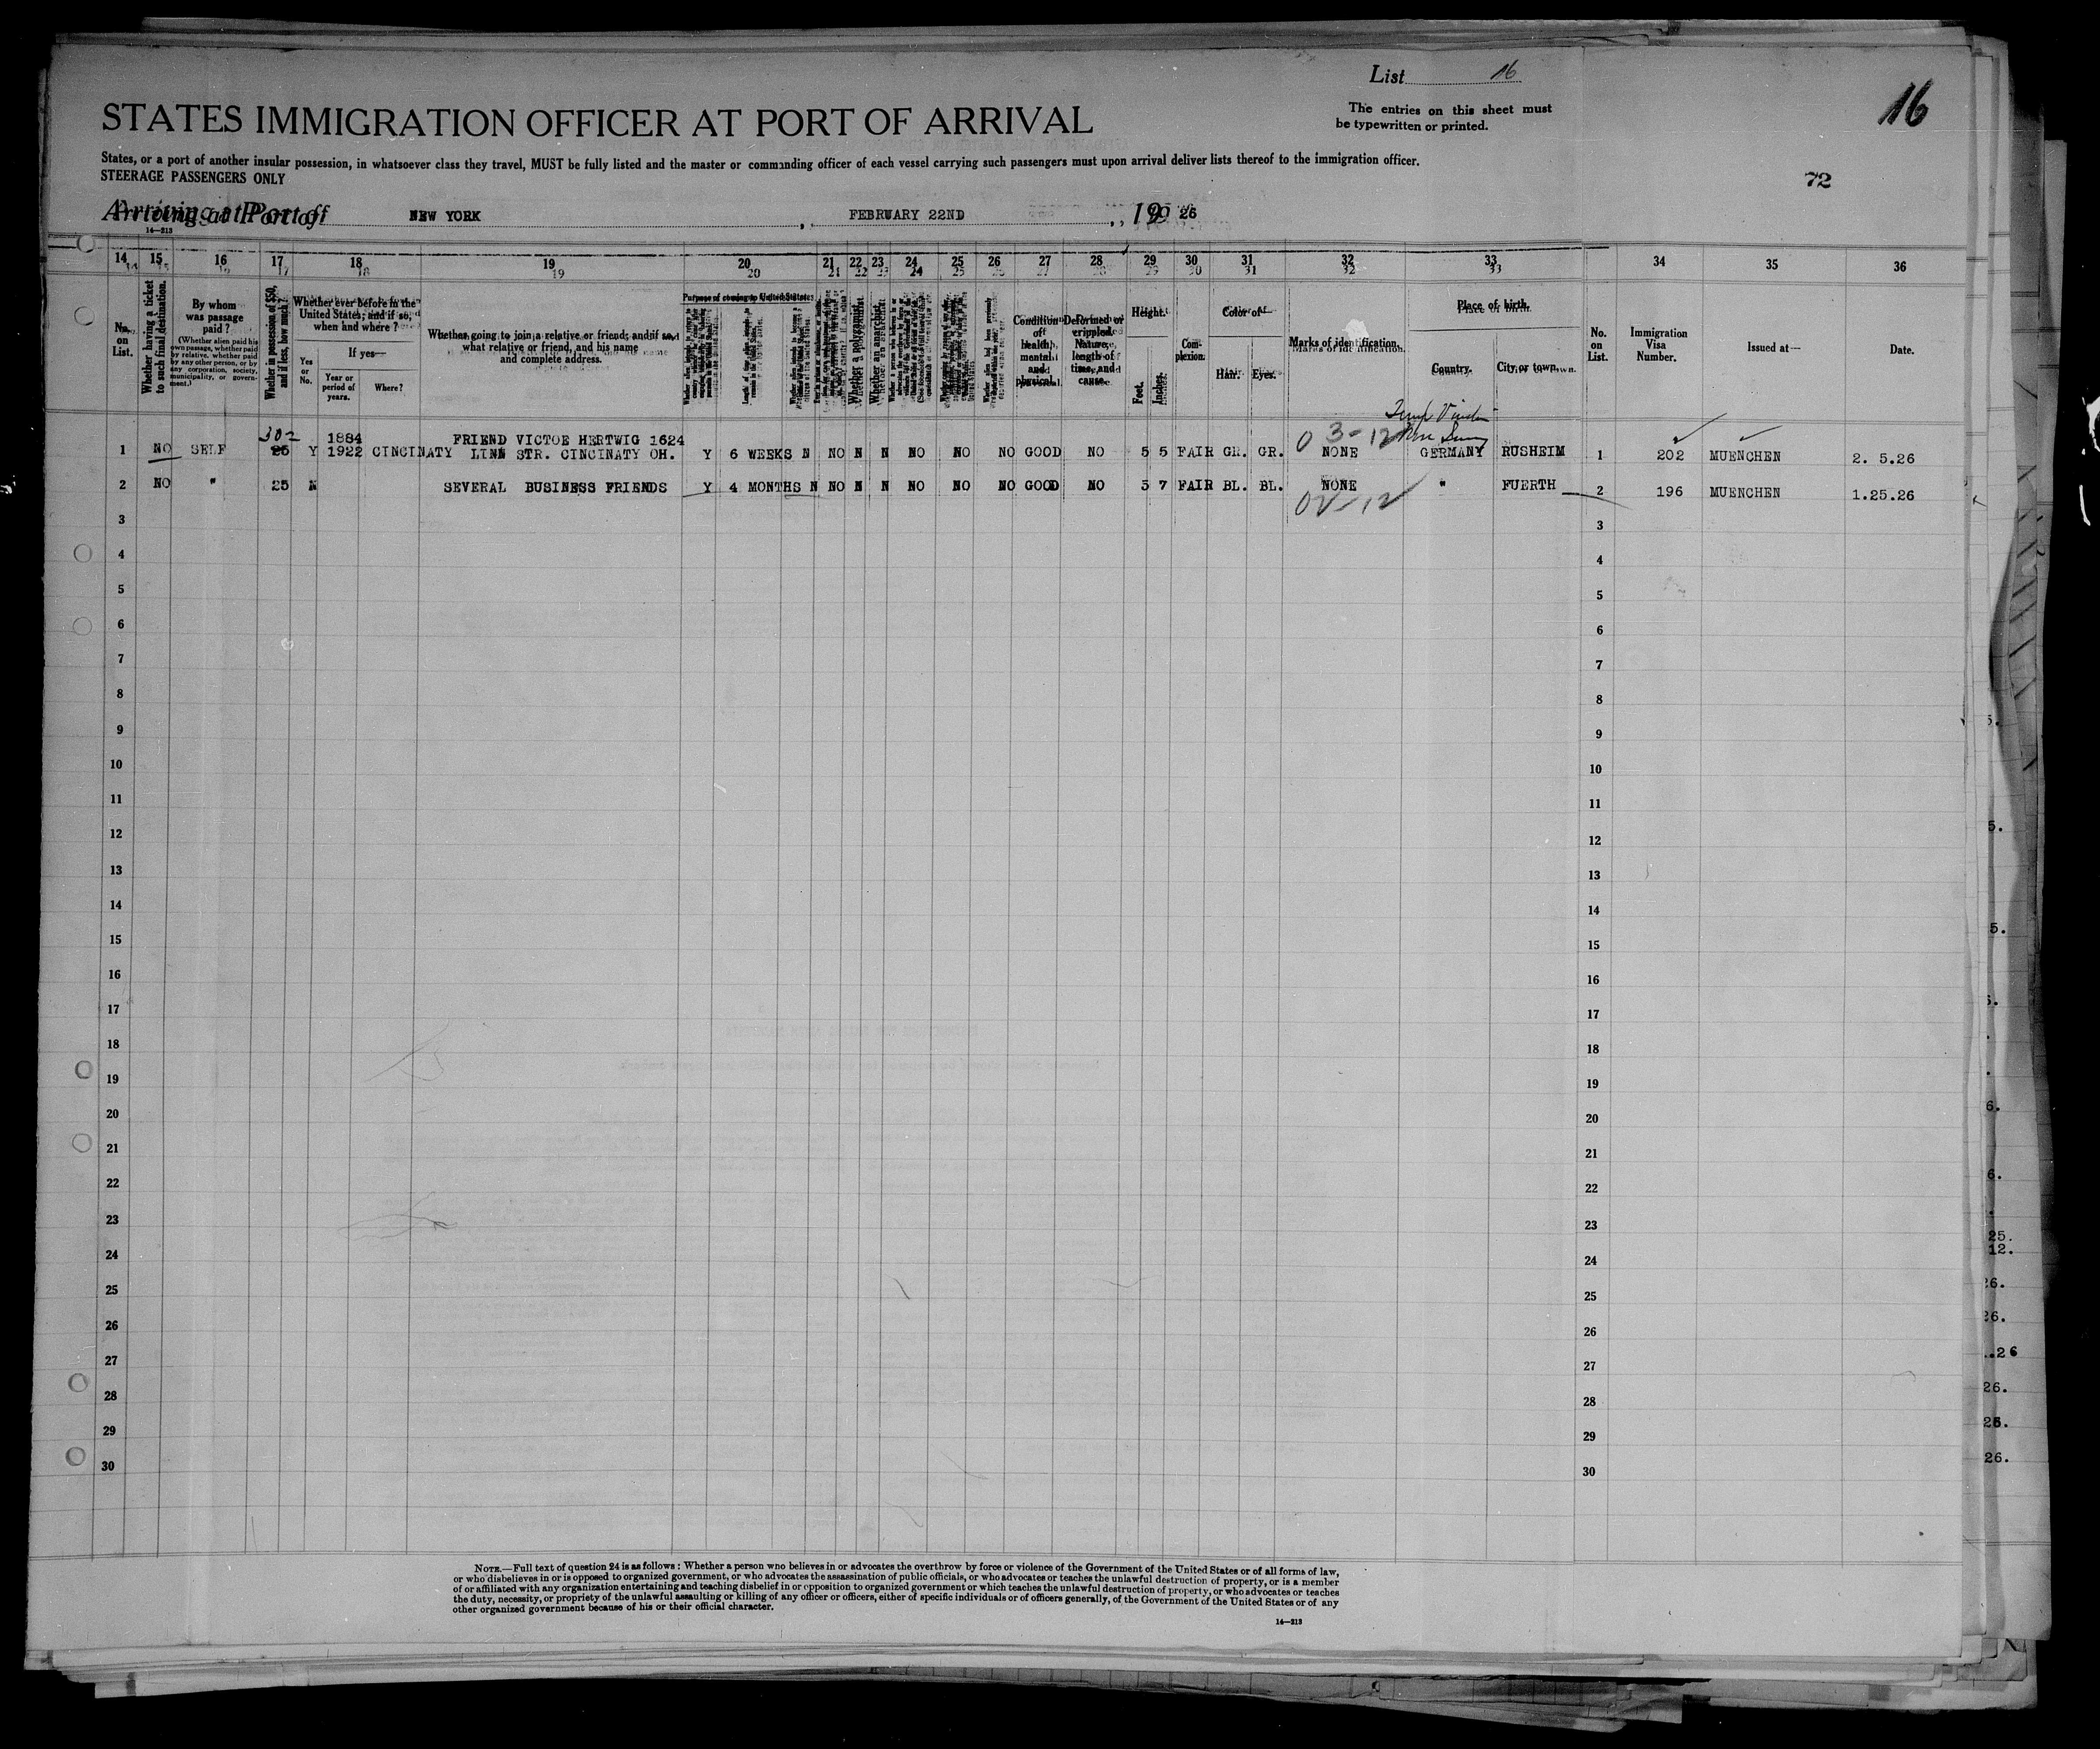 List 16
16
The entries on this sheet must
be typewritten or printed.
STATES IMMIGRATION OFFICER AT PORT OF ARRIVAL
States, or a port of another insular possession, in whatsoever class they travel, MUST be fully listed and the master or commanding officer of each vessel carrying such passengers must upon arrival deliver lists thereof to the immigration officer.
STEERAGE PASSENGERS ONLY
72
Arriving at Port of NEW YORK, FEBRUARY 22ND, 19 26
14—213
14 15 16 17 18 19 20 21 22 23 24 25 26 27 28 29 30 31 32 33 34 35 36
No. on List.
Whether having a ticket to such final destination.
By whom was passage paid?
(Whether alien paid his own passage, whether paid by relative, whether paid by any other person, or by any corporation, society, municipality, or government.)
Whether in possession of $50, and if less, how much?
Whether ever before in the United States; and if so, when and where?
Yes or No.
If yes—
Year or period of years.
Where?
Whether going to join a relative or friend; and if so, what relative or friend, and his name and complete address.
Purpose of coming to United States.
Whether a polygamist.
Whether an anarchist.
Condition of health, mental and physical.
Deformed or crippled. Nature, length of time, and cause.
Height.
Feet. Inches.
Complexion.
Color of—
Hair. Eyes.
Marks of identification.
Place of birth.
Country. City or town.
No. on List.
Immigration Visa Number.
Issued at—
Date.
302
1884 FRIEND VICTOE HERTWIG 1624
0 3-12
1 NO SELF 25 Y 1922 CINCINATY LINN STR. CINCINATY OH. Y 6 WEEKS N NO N N NO NO NO GOOD NO 5 5 FAIR GR. GR. NONE GERMANY RUSHEIM 1 202 MUENCHEN 2. 5.26
2 NO " 25 N SEVERAL BUSINESS FRIENDS Y 4 MONTHS N NO N N NO NO NO GOOD NO 5 7 FAIR BL. BL. NONE " FUERTH 2 196 MUENCHEN 1.25.26
3 3
4 4
5 5
6 6
7 7
8 8
9 9
10 10
11 11
12 12
13 13
14 14
15 15
16 16
17 17
18 18
19 19
20 20
21 21
22 22
23 23
24 24
25 25
26 26
27 27
28 28
29 29
30 30
NOTE.—Full text of question 24 is as follows: Whether a person who believes in or advocates the overthrow by force or violence of the Government of the United States or of all forms of law,
or who disbelieves in or is opposed to organized government, or who advocates the assassination of public officials, or who advocates or teaches the unlawful destruction of property, or is a member
of or affiliated with any organization entertaining and teaching disbelief in or opposition to organized government or which teaches the unlawful destruction of property, or who advocates or teaches
the duty, necessity, or propriety of the unlawful assaulting or killing of any officer or officers, either of specific individuals or of officers generally, of the Government of the United States or of any
other organized government because of his or their official character.
14—213